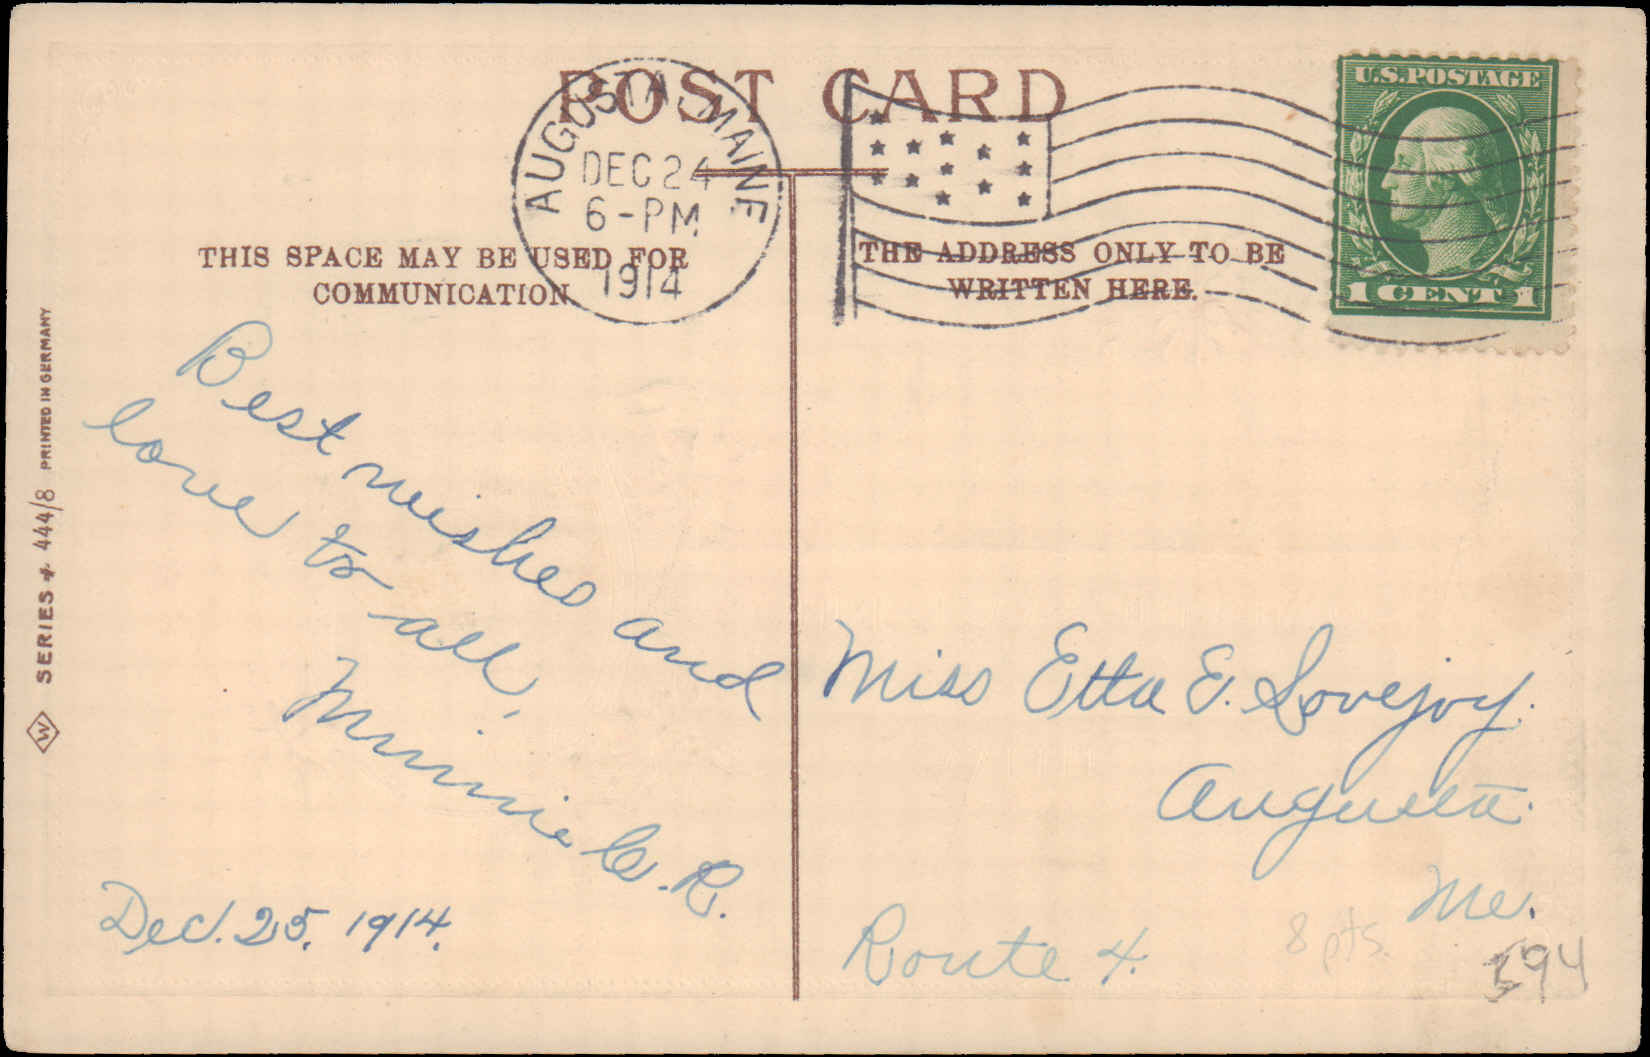 POST CARD
AUGUSTA, MAINE
DEC 24
6-PM
1914
U.S. POSTAGE
1 CENT 1
THIS SPACE MAY BE USED FOR
COMMUNICATION
THE ADDRESS ONLY TO BE
WRITTEN HERE.
Best wishes and
love to all,
Minnie C. R.
Dec. 25, 1914.
Miss Etta E. Lovejoy.
Augusta.
Me.
Route 4.
8 pts.
594
SERIES 444/8 PRINTED IN GERMANY
W